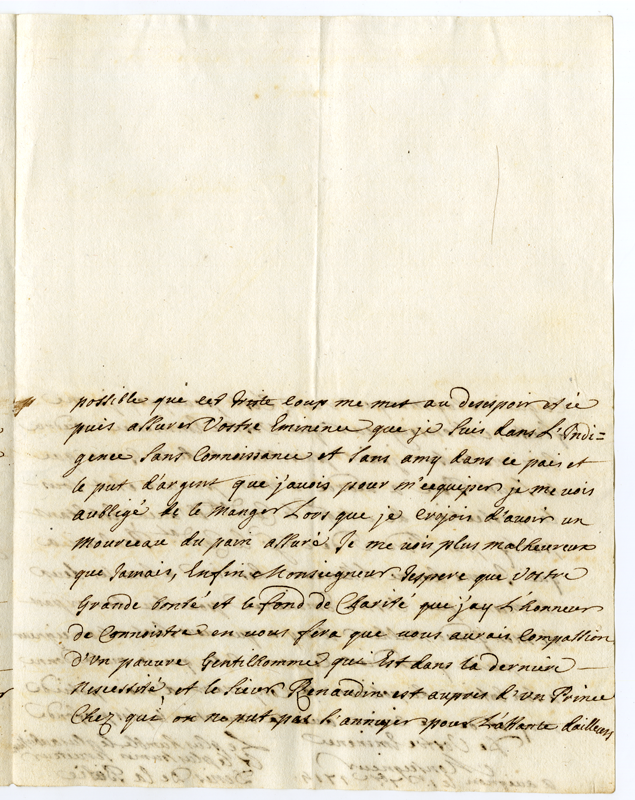 possible que cet triste coup me met au desespoir et ie
puis assurer Vostre Eminence que je suis dans L'Indi=
gence sans Connoissance et sans amy dans ce païs et
le put d'argent que j'avois pour m'eequiper je me vois
aubligé de le manger Lors que je crojois d'avoir un
mourceau du pain assuré Je me vois plus malheureux
que Jamais, Enfin Monseigneur J'espere que Vostre
Grande bonté et le fond de Charité que j'ay L'honneur
de Connoistre en vous fera que vous aurais Compassion
d'vn pauvre Gentilhomme qui Est dans la derniere
Necessité et le sieur Renaudin est aupres d'vn Prince
Chez qué on ne put pas l'annujer pour L'attante d'ailleurs